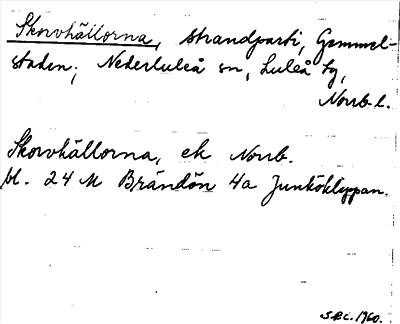 Skorvhällorna, strandparti, Gammel-
staden; Nederluleå sn, Luleå tg,
Norrb. l.
Skorvhällorna, ek Norrb.
bl. 24 M Brändön 4a Junköklippan.
S.E.C. 1960.